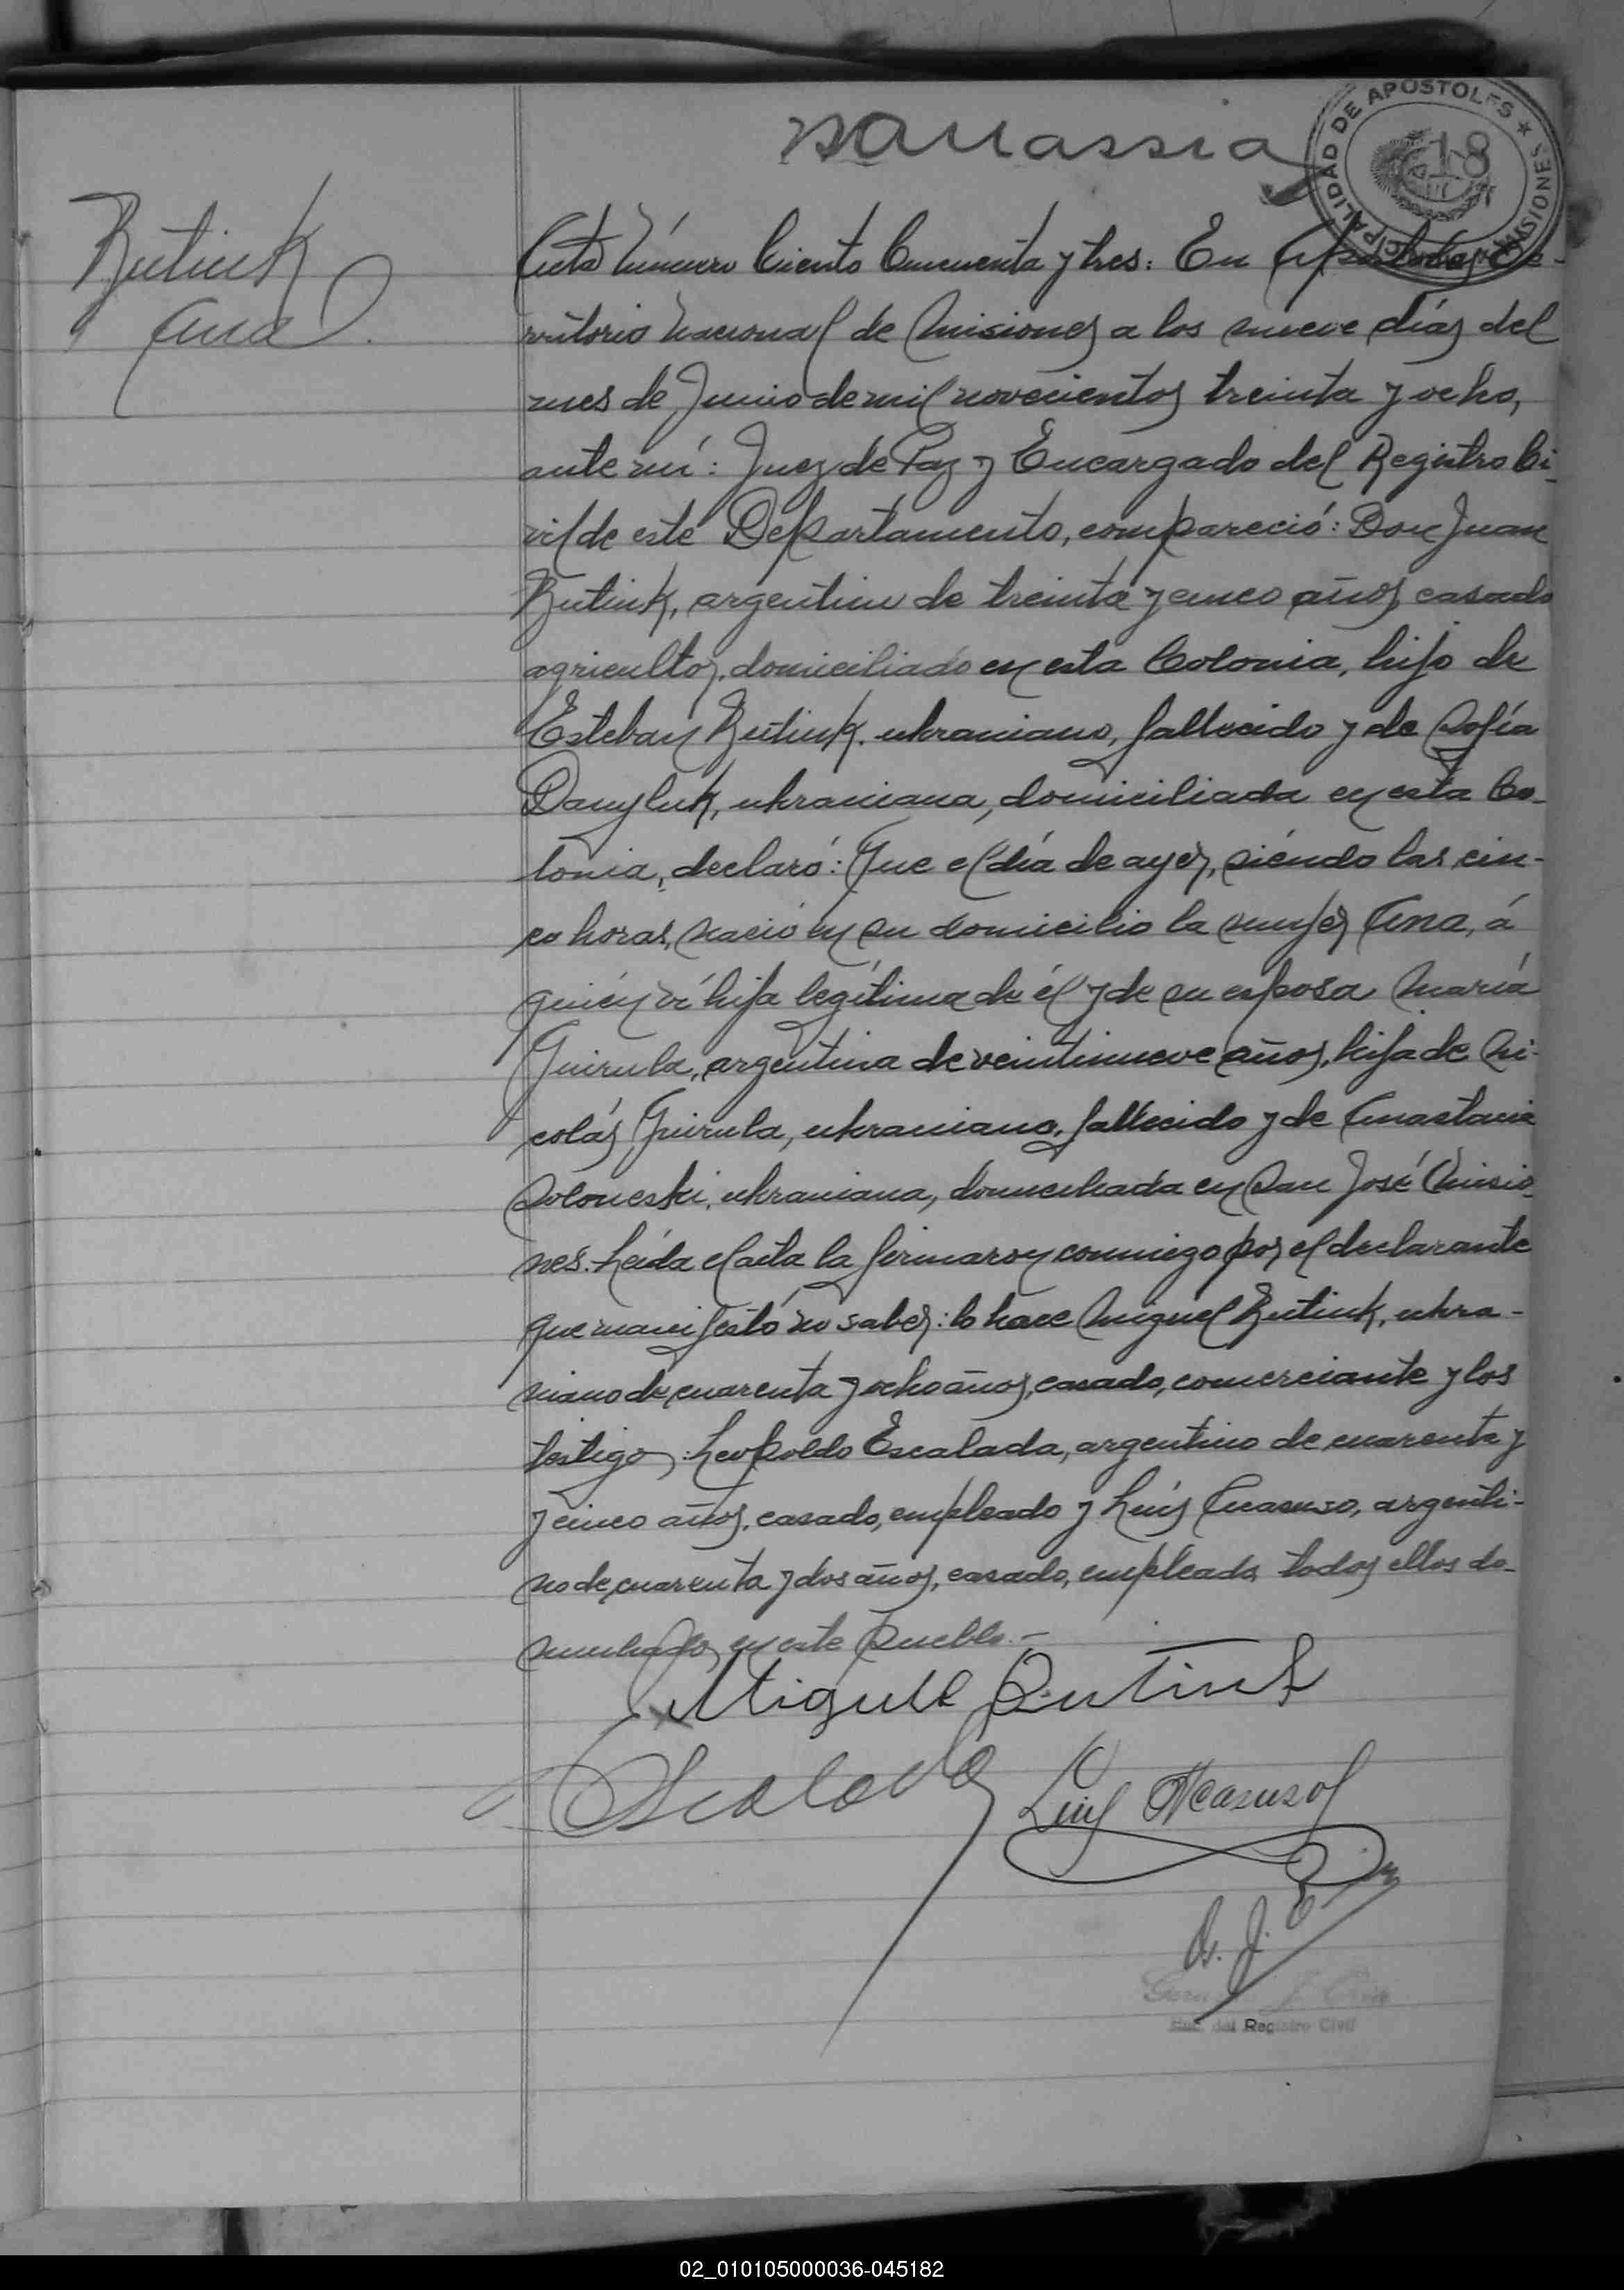 MUNICIPALIDAD DE APOSTOLES ★ MISIONES
18
Rutiuk
Ana
Acta Número Ciento Cincuenta y tres: En Apóstoles, Te-
rritorio Nacional de Misiones a los nueve días del
mes de Junio de mil novecientos treinta y ocho,
ante mí: Juez de Paz y Encargado del Registro Ci-
vil de este Departamento, compareció: Don Juan
Rutiuk, argentino de treinta y cinco años, casado
agricultor, domiciliado en esta Colonia, hijo de
Esteban Rutiuk, ukraniano, fallecido y de Sofía
Danyluk, ukraniana, domiciliada en esta Co-
lonia, declaró: Que el día de ayer, siéndo las cin-
co horas, nació en su domicilio la mujer Ana, á
quién ví hija legítima de él y de su esposa María
Guirula, argentina de veintinueve años, hija de Ni-
colás Guirula, ukraniano, fallecido y de Anastacia
Soloneski, ukraniana, domiciliada en San José Misio-
nes. Leída el acta la firmaron conmigo por el declarante
que manifestó no saber: lo hace Miguel Rutiuk, ukra-
niano de cuarenta y ocho años, casado, comerciante y los
testigos: Leopoldo Escalada, argentino de cuarenta y
y cinco años, casado, empleado y Luís Acasuso, argenti-
no de cuarenta y dos años, casado, empleado todos ellos do-
miciliados en este pueblo.-
Miguel Rutiuk
Escalada
Luis Acasuso
del Registro Civil
02_010105000036-045182